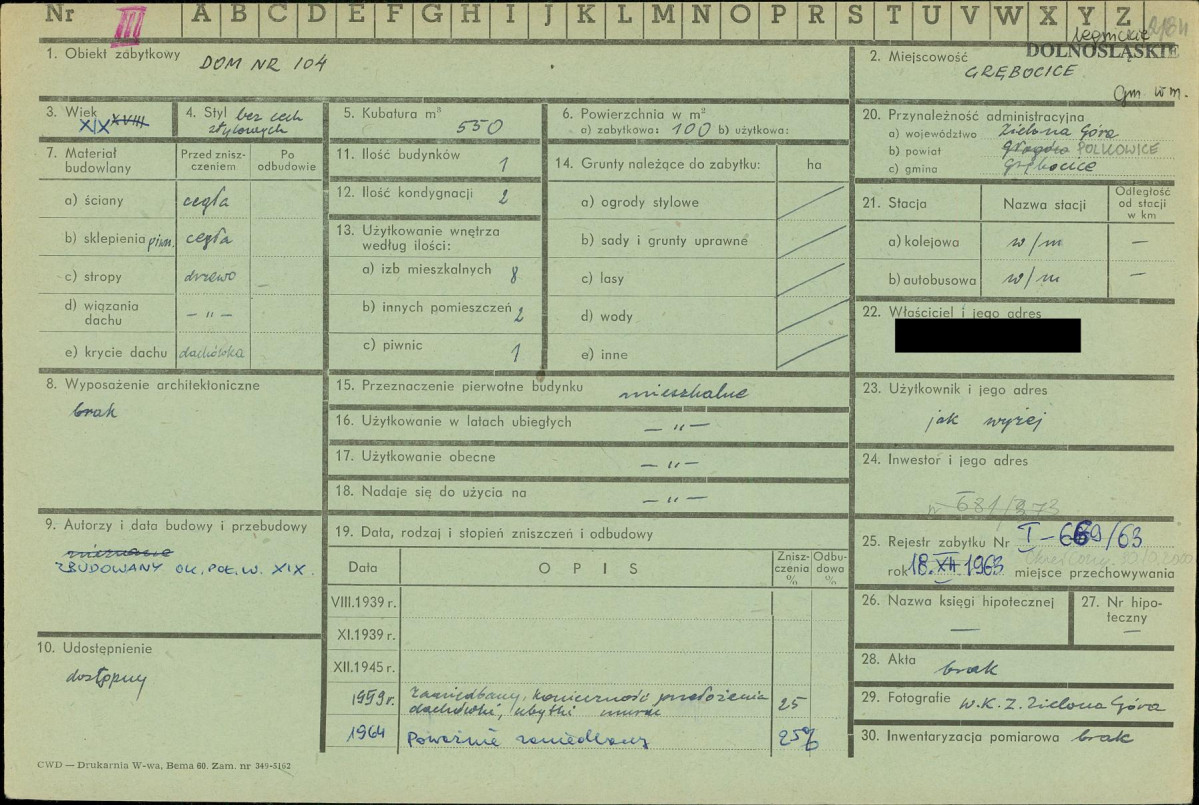 Nr III A B C D E F G H I J K L M N O P R S T U V W X Y Z
legnickie
DOLNOŚLĄSKIE
1. Obiekt zabytkowy DOM NR 104
2. Miejscowość
GRĘBOCICE
Gm. w m.
3. Wiek
XIX XVIII
4. Styl bez cech
stylowych
5. Kubatura m³
550
6. Powierzchnia w m²
a) zabytkowa: 100 b) użytkowa:
7. Materiał
budowlany
Przed znisz-
czeniem
Po
odbudowie
a) ściany cegła
b) sklepienia piwn. cegła
c) stropy drzewo –
d) wiązania
dachu – " –
e) krycie dachu dachówka
8. Wyposażenie architektoniczne
brak
9. Autorzy i data budowy i przebudowy
nieznane
ZBUDOWANY OK. POŁ. W. XIX.
10. Udostępnienie
dostępny
11. Ilość budynków 1
12. Ilość kondygnacji 2
13. Użytkowanie wnętrza
według ilości:
a) izb mieszkalnych 8
b) innych pomieszczeń 2
c) piwnic 1
14. Grunty należące do zabytku: ha
a) ogrody stylowe
b) sady i grunty uprawne
c) lasy
d) wody
e) inne
15. Przeznaczenie pierwotne budynku mieszkalne
16. Użytkowanie w latach ubiegłych – " –
17. Użytkowanie obecne – " –
18. Nadaje się do użycia na – " –
19. Data, rodzaj i stopień zniszczeń i odbudowy
Data
OPIS
Znisz-
czenia
%
Odbu-
dowa
%
VIII.1939 r.
XI.1939 r.
XII.1945 r.
1959 r. zaniedbany, konieczność przełożenia
dachówki, ubytki murze 25
1964 Poważnie zaniedbany 25%
20. Przynależność administracyjna
a) województwo Zielona Góra
b) powiat Głogów POLKOWICE
c) gmina Grębocice
21. Stacja
Nazwa stacji
Odległość
od stacji
w km
a) kolejowa w/m –
b) autobusowa w/m –
22. Właściciel i jego adres
23. Użytkownik i jego adres
jak wyżej
24. Inwestor i jego adres
25. Rejestr zabytku Nr I-660/63
rok 18.XII 1963 miejsce przechowywania
26. Nazwa księgi hipotecznej
–
27. Nr hipo-
teczny
–
28. Akta
brak
29. Fotografie W.K.Z. Zielona Góra
30. Inwentaryzacja pomiarowa brak
CWD — Drukarnia W-wa, Bema 60. Zam. nr 349-5162